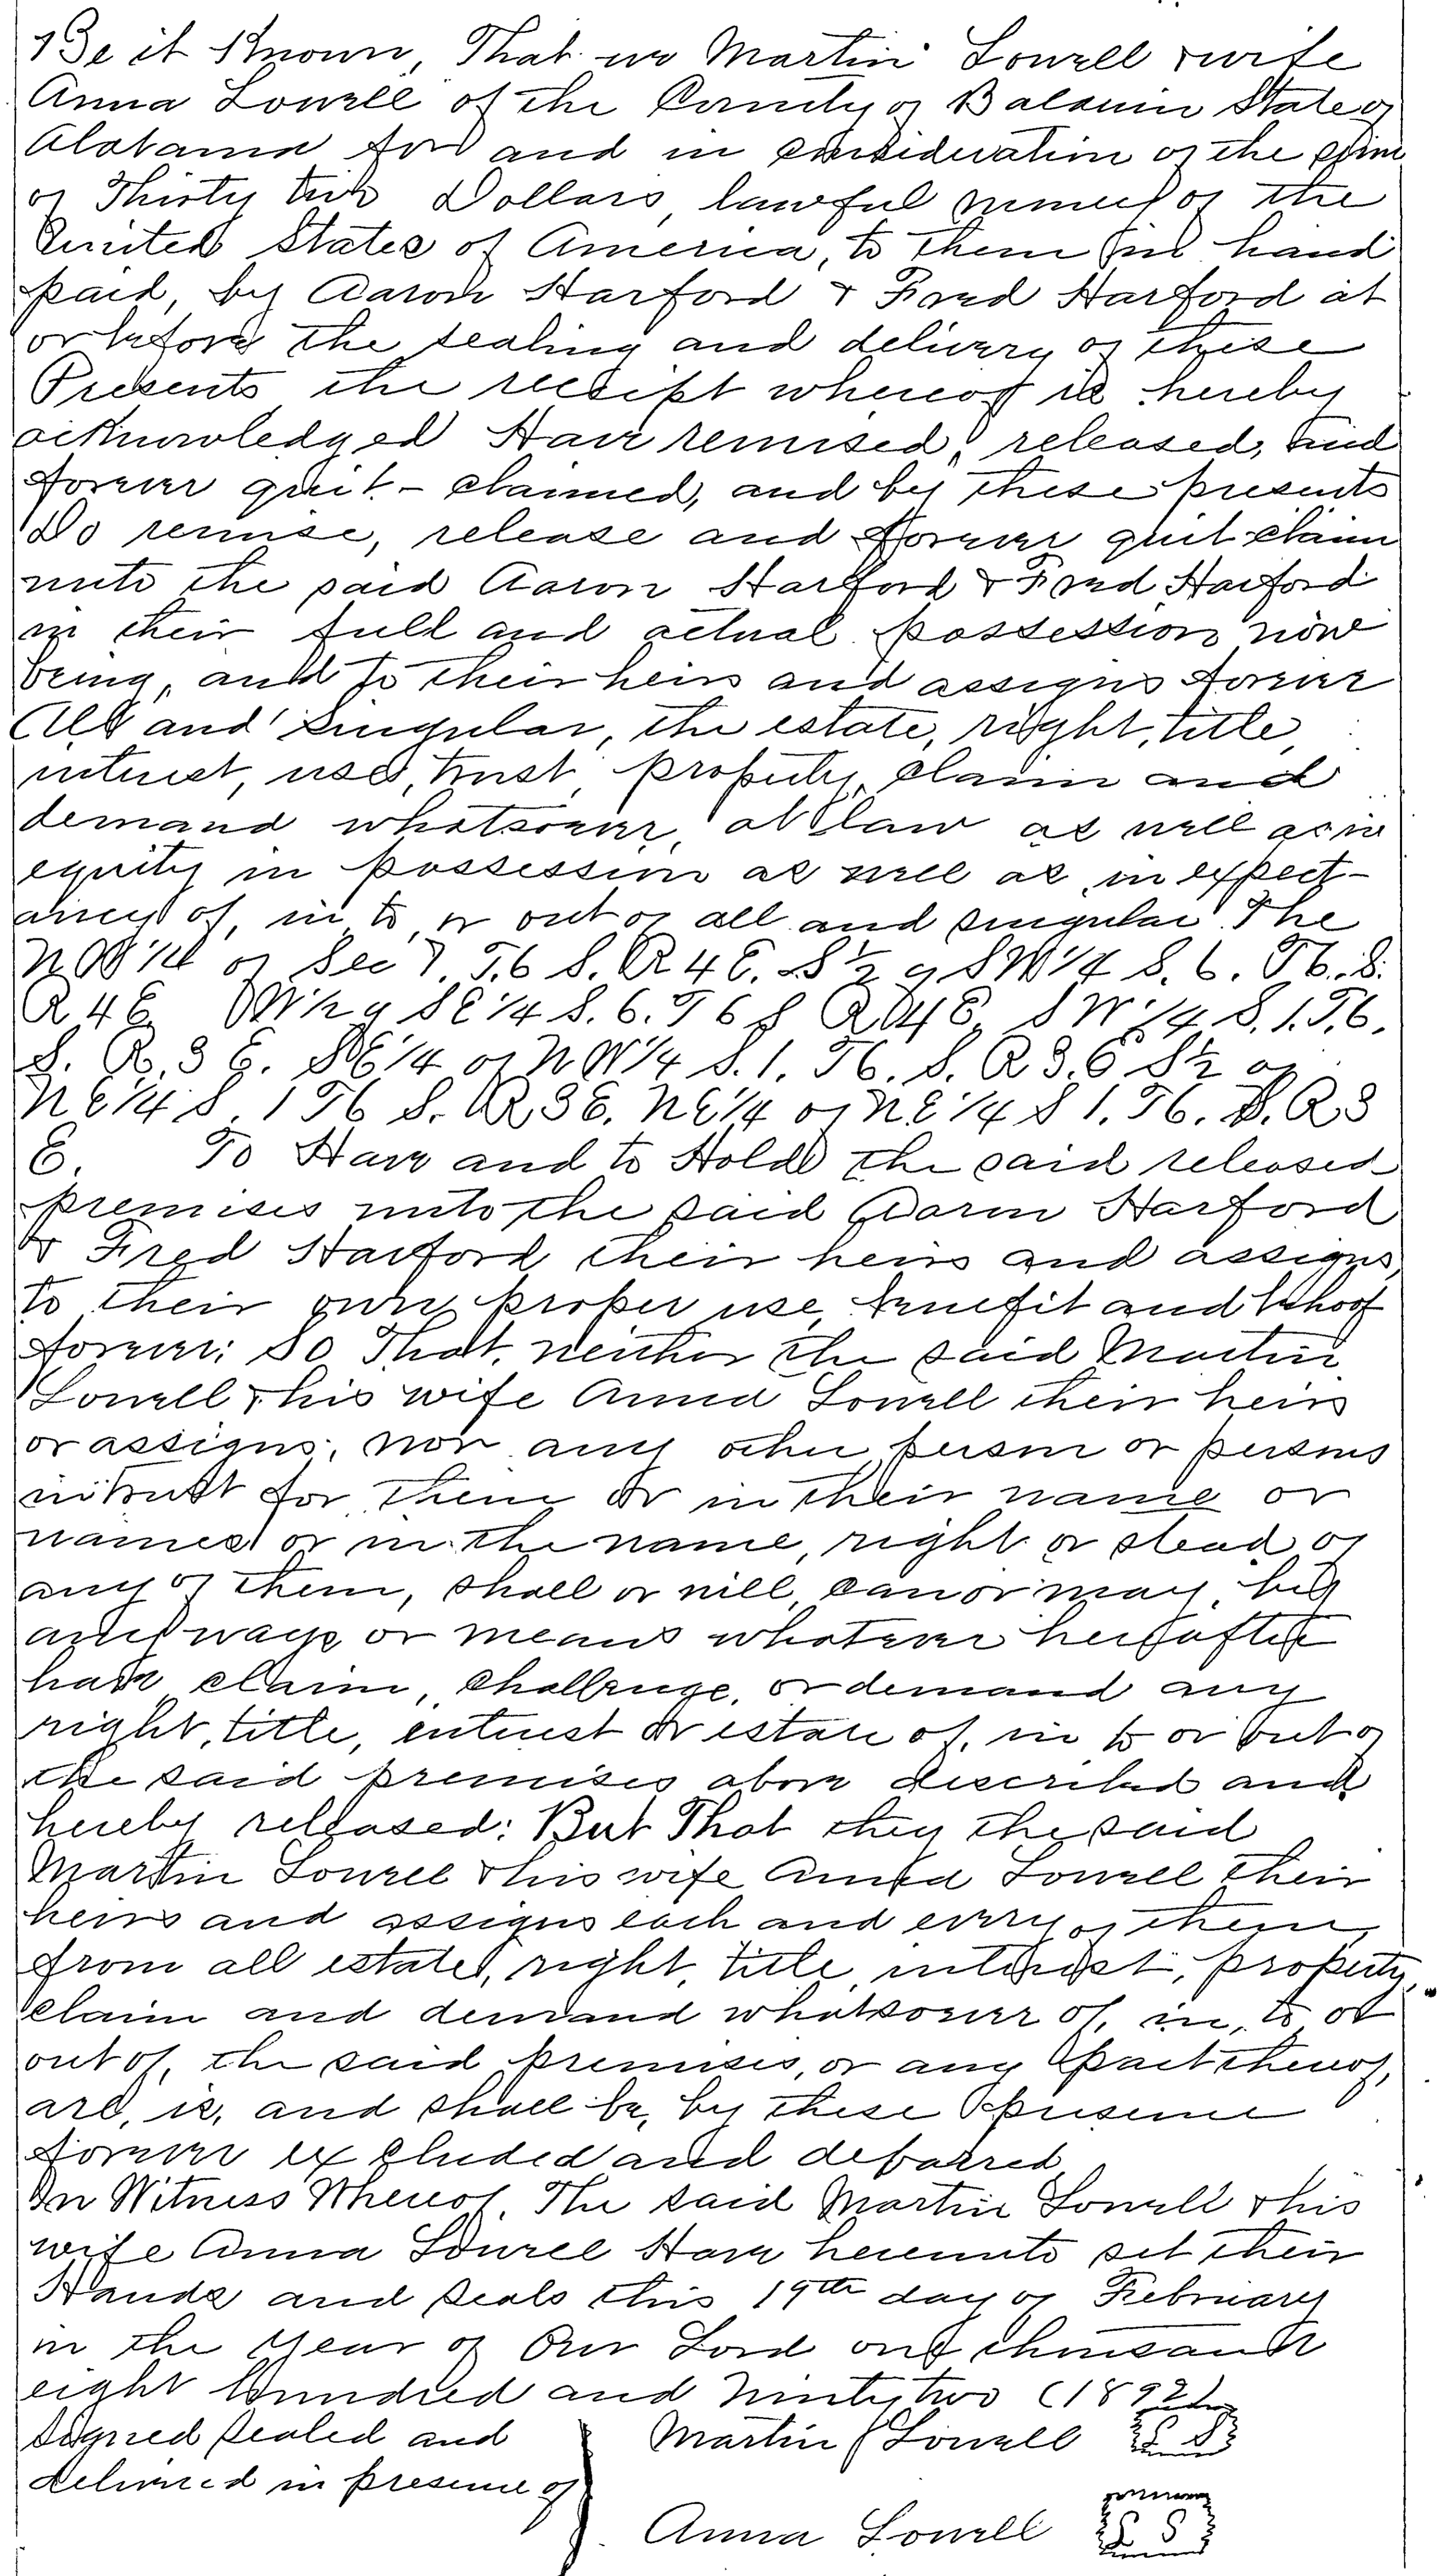 Be it Known, That we Martin Lowell & wife
Anna Lowell of the County of Baldwin State of
Alabama for and in consideration of the sum
of Thirty two Dollars, lawful money of the
United States of America, to them in hand
paid, by Aaron Harford & Fred Harford at
or before the sealing and delivery of these
Presents the receipt whereof is hereby
acknowledged Have remised, released, and
forever quit-claimed, and by these presents
Do remise, release and forever quit claim
unto the said Aaron Harford & Fred Harford
in their full and actual possession now
being, and to their heirs and assigns forever
All and singular, the estate, right, title,
interest, use, trust, property, claim and
demand whatsoever, at law as well as in
equity in possession as well as in expect-
ancy of, in to, or out of all and singular The
NW 1/4 of Sec 7. T.6 S. R 4 E. S 1/2 of SW 1/4 S. 6. T6. S.
R 4 E. W 1/2 of SE 1/4 S. 6. T 6 S R 4 E, SW 1/4 S. 1. T.6.
S. R. 3 E. SE 1/4 of NW 1/4 S. 1. T6. S. R 3. E S 1/2 of
NE 1/4 S. 1 T6 S. R 3 E. NE 1/4 of NE 1/4 S 1. T6. S. R 3
E. To Have and to Hold the said released
premises unto the said Aaron Harford
& Fred Harford their heirs and assigns,
to their own proper use, benefit and behoof
forever; So That, neither the said Martin
Lowell & his wife Anna Lowell their heirs
or assigns, nor any other person or persons
in trust for them or in their name or
names or in the name, right or stead of
any of them, shall or will, can or may, by
any ways or means whatever hereafter
have claim, challenge, or demand any
right, title, interest or estate of, in to or out of
the said premises above described and
hereby released: But That they the said
Martin Lowell & his wife Anna Lowell their
heirs and assigns each and every of them,
from all estate, right, title, interest, property,
claim and demand whatsoever of, in, to or
out of, the said premises, or any part thereof,
are, is, and shall be, by these presence
forever excluded and debarred
In Witness Whereof, The said Martin Lowell & his
wife Anna Lowell Have hereunto set their
Hands and seals this 19th day of February
in the Year of Our Lord one thousand
eight hundred and Ninety two (1892)
Signed sealed and Martin Lowell L S
delivered in presence of
Anna Lowell L S